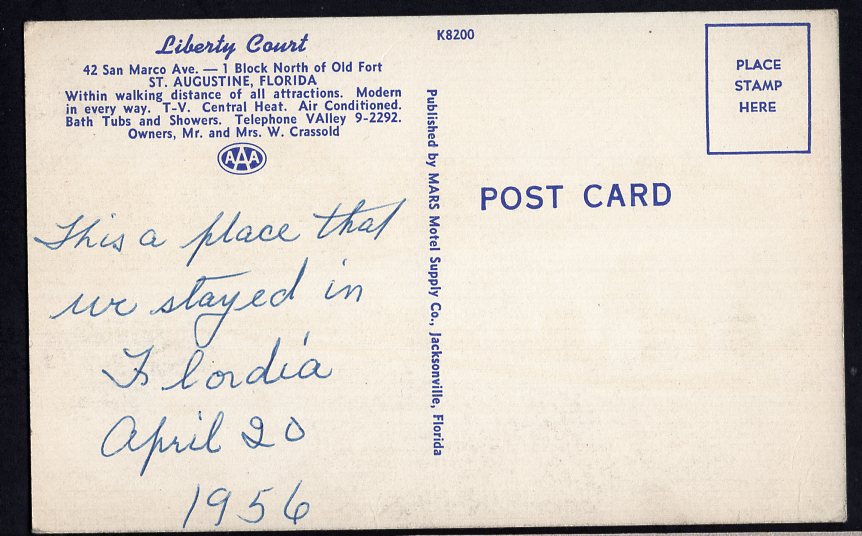 Liberty Court
42 San Marco Ave. — 1 Block North of Old Fort
ST. AUGUSTINE, FLORIDA
Within walking distance of all attractions. Modern
in every way. T-V. Central Heat. Air Conditioned.
Bath Tubs and Showers. Telephone VAlley 9-2292.
Owners, Mr. and Mrs. W. Crassold
AAA
This a place that
we stayed in
Flordia
April 20
1956
Published by MARS Motel Supply Co., Jacksonville, Florida
K8200
POST CARD
PLACE
STAMP
HERE